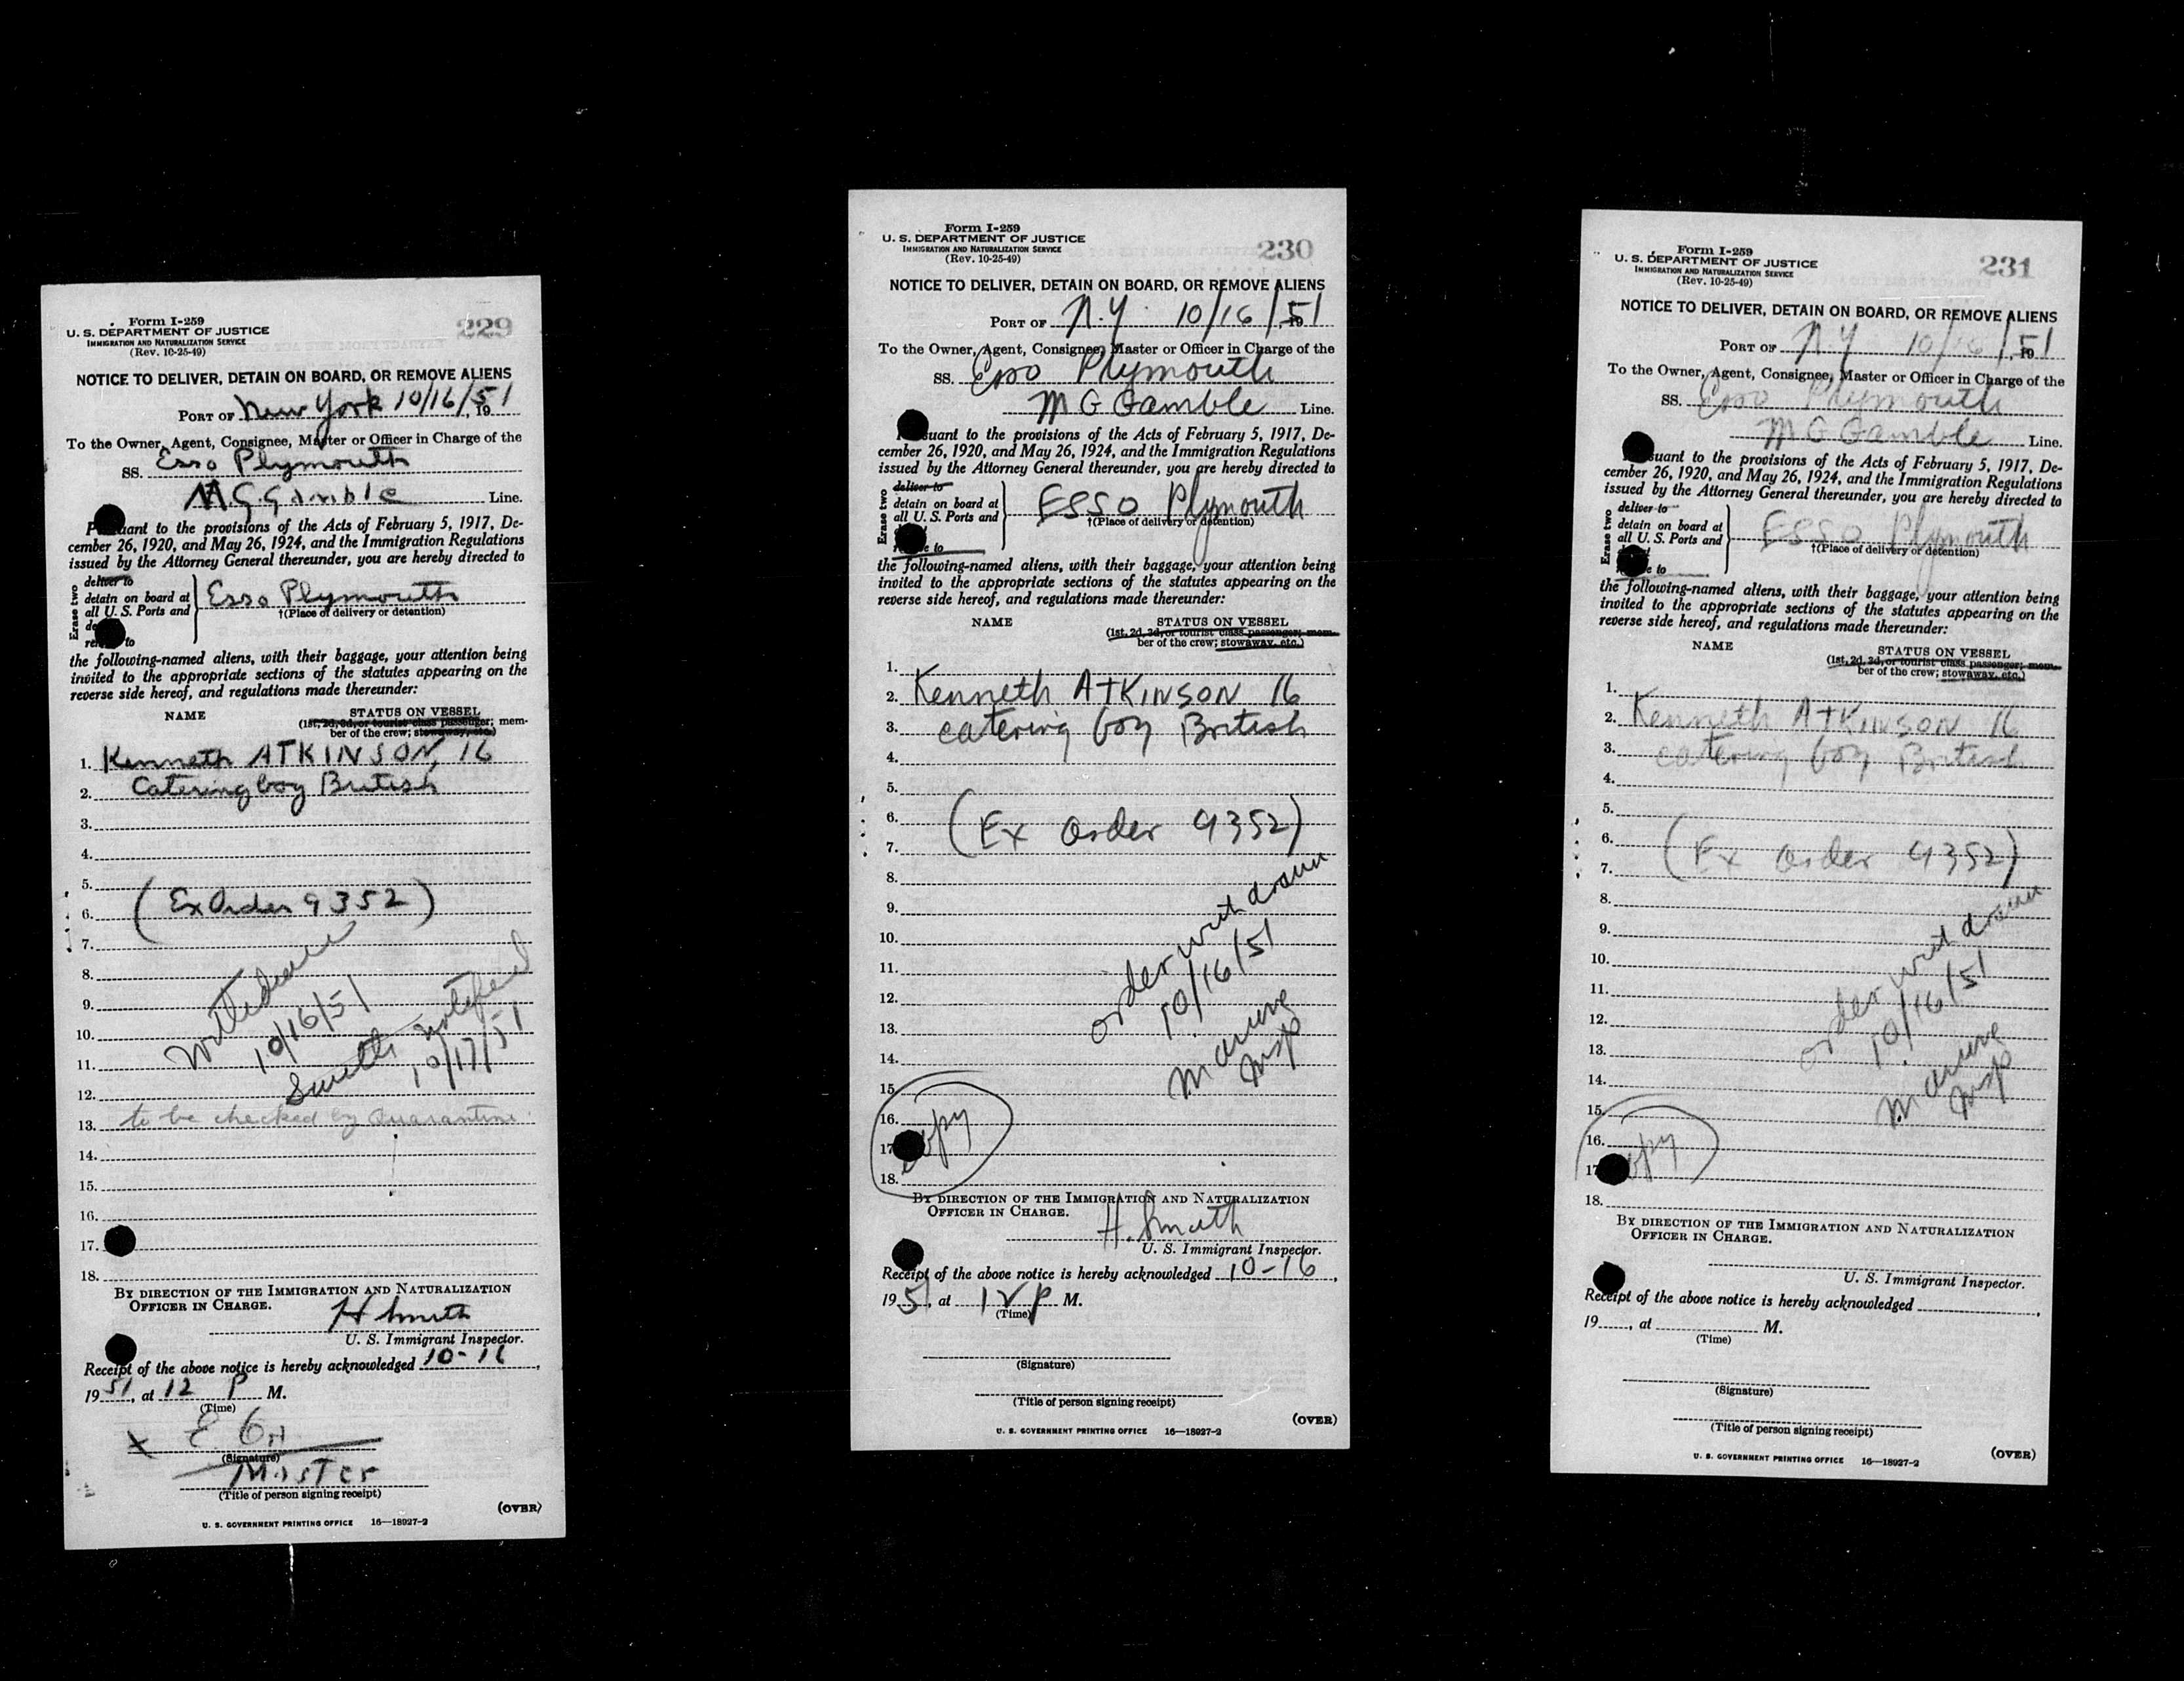 Form I-259
U. S. DEPARTMENT OF JUSTICE
IMMIGRATION AND NATURALIZATION SERVICE
(Rev. 10-25-49)
229
NOTICE TO DELIVER, DETAIN ON BOARD, OR REMOVE ALIENS
PORT OF New York 10/16/51, 19
To the Owner, Agent, Consignee, Master or Officer in Charge of the
SS. Esso Plymouth
M G Gamble Line.
Pursuant to the provisions of the Acts of February 5, 1917, De-
cember 26, 1920, and May 26, 1924, and the Immigration Regulations
issued by the Attorney General thereunder, you are hereby directed to
Erase two
deliver to
detain on board at
all U. S. Ports and
to
Esso Plymouth
†(Place of delivery or detention)
the following-named aliens, with their baggage, your attention being
invited to the appropriate sections of the statutes appearing on the
reverse side hereof, and regulations made thereunder:
NAME STATUS ON VESSEL
(1st, 2d, 3d, or tourist class passenger; mem-
ber of the crew; stowaway, etc.)
1. Kenneth ATKINSON, 16
2. Catering boy British
3.
4.
5.
6. (Ex Order 9352)
7.
8.
9.
10.
11.
12.
Withdrawn
10/16/51
Smith notified
10/17/51
13. to be checked by Quarantine
14.
15.
16.
17.
18.
BY DIRECTION OF THE IMMIGRATION AND NATURALIZATION
OFFICER IN CHARGE.
H Smith
U. S. Immigrant Inspector.
Receipt of the above notice is hereby acknowledged 10-16,
1951, at 12 P M.
(Time)
x E.
(Signature)
Master
(Title of person signing receipt)
(OVER)
U. S. GOVERNMENT PRINTING OFFICE 16—18927-2
Form I-259
U. S. DEPARTMENT OF JUSTICE
IMMIGRATION AND NATURALIZATION SERVICE
(Rev. 10-25-49)
230
NOTICE TO DELIVER, DETAIN ON BOARD, OR REMOVE ALIENS
PORT OF N.Y. 10/16/51, 19
To the Owner, Agent, Consignee, Master or Officer in Charge of the
SS. Esso Plymouth
M G Gamble Line.
Pursuant to the provisions of the Acts of February 5, 1917, De-
cember 26, 1920, and May 26, 1924, and the Immigration Regulations
issued by the Attorney General thereunder, you are hereby directed to
Erase two
deliver to
detain on board at
all U. S. Ports and
to
ESSO Plymouth
†(Place of delivery or detention)
the following-named aliens, with their baggage, your attention being
invited to the appropriate sections of the statutes appearing on the
reverse side hereof, and regulations made thereunder:
NAME STATUS ON VESSEL
(1st, 2d, 3d, or tourist class passenger; mem-
ber of the crew; stowaway, etc.)
1.
2. Kenneth ATKINSON 16
3. catering boy British
4.
5.
6. (Ex Order 9352)
7.
8.
9.
10.
11.
12.
13.
14.
order withdrawn
10/16/51
Insp
15.
16. Copy
17.
18.
BY DIRECTION OF THE IMMIGRATION AND NATURALIZATION
OFFICER IN CHARGE.
H. Smith
U. S. Immigrant Inspector.
Receipt of the above notice is hereby acknowledged 10-16,
195, at 12 P M.
(Time)
(Signature)
(Title of person signing receipt)
(OVER)
U. S. GOVERNMENT PRINTING OFFICE 16—18927-2
Form I-259
U. S. DEPARTMENT OF JUSTICE
IMMIGRATION AND NATURALIZATION SERVICE
(Rev. 10-25-49)
231
NOTICE TO DELIVER, DETAIN ON BOARD, OR REMOVE ALIENS
PORT OF N.Y 10/16/51, 19
To the Owner, Agent, Consignee, Master or Officer in Charge of the
SS. Esso Plymouth
M G Gamble Line.
Pursuant to the provisions of the Acts of February 5, 1917, De-
cember 26, 1920, and May 26, 1924, and the Immigration Regulations
issued by the Attorney General thereunder, you are hereby directed to
Erase two
deliver to
detain on board at
all U. S. Ports and
to
ESSO Plymouth
†(Place of delivery or detention)
the following-named aliens, with their baggage, your attention being
invited to the appropriate sections of the statutes appearing on the
reverse side hereof, and regulations made thereunder:
NAME STATUS ON VESSEL
(1st, 2d, 3d, or tourist class passenger; mem-
ber of the crew; stowaway, etc.)
1.
2. Kenneth ATKINSON 16
3. catering boy British
4.
5.
6. (Ex Order 9352)
7.
8.
9.
10.
11.
12.
13.
14.
order withdrawn
10/16/51
Insp
15.
16. Copy
17
18.
BY DIRECTION OF THE IMMIGRATION AND NATURALIZATION
OFFICER IN CHARGE.
U. S. Immigrant Inspector.
Receipt of the above notice is hereby acknowledged
19, at M.
(Time)
(Signature)
(Title of person signing receipt)
(OVER)
U. S. GOVERNMENT PRINTING OFFICE 16—18927-2